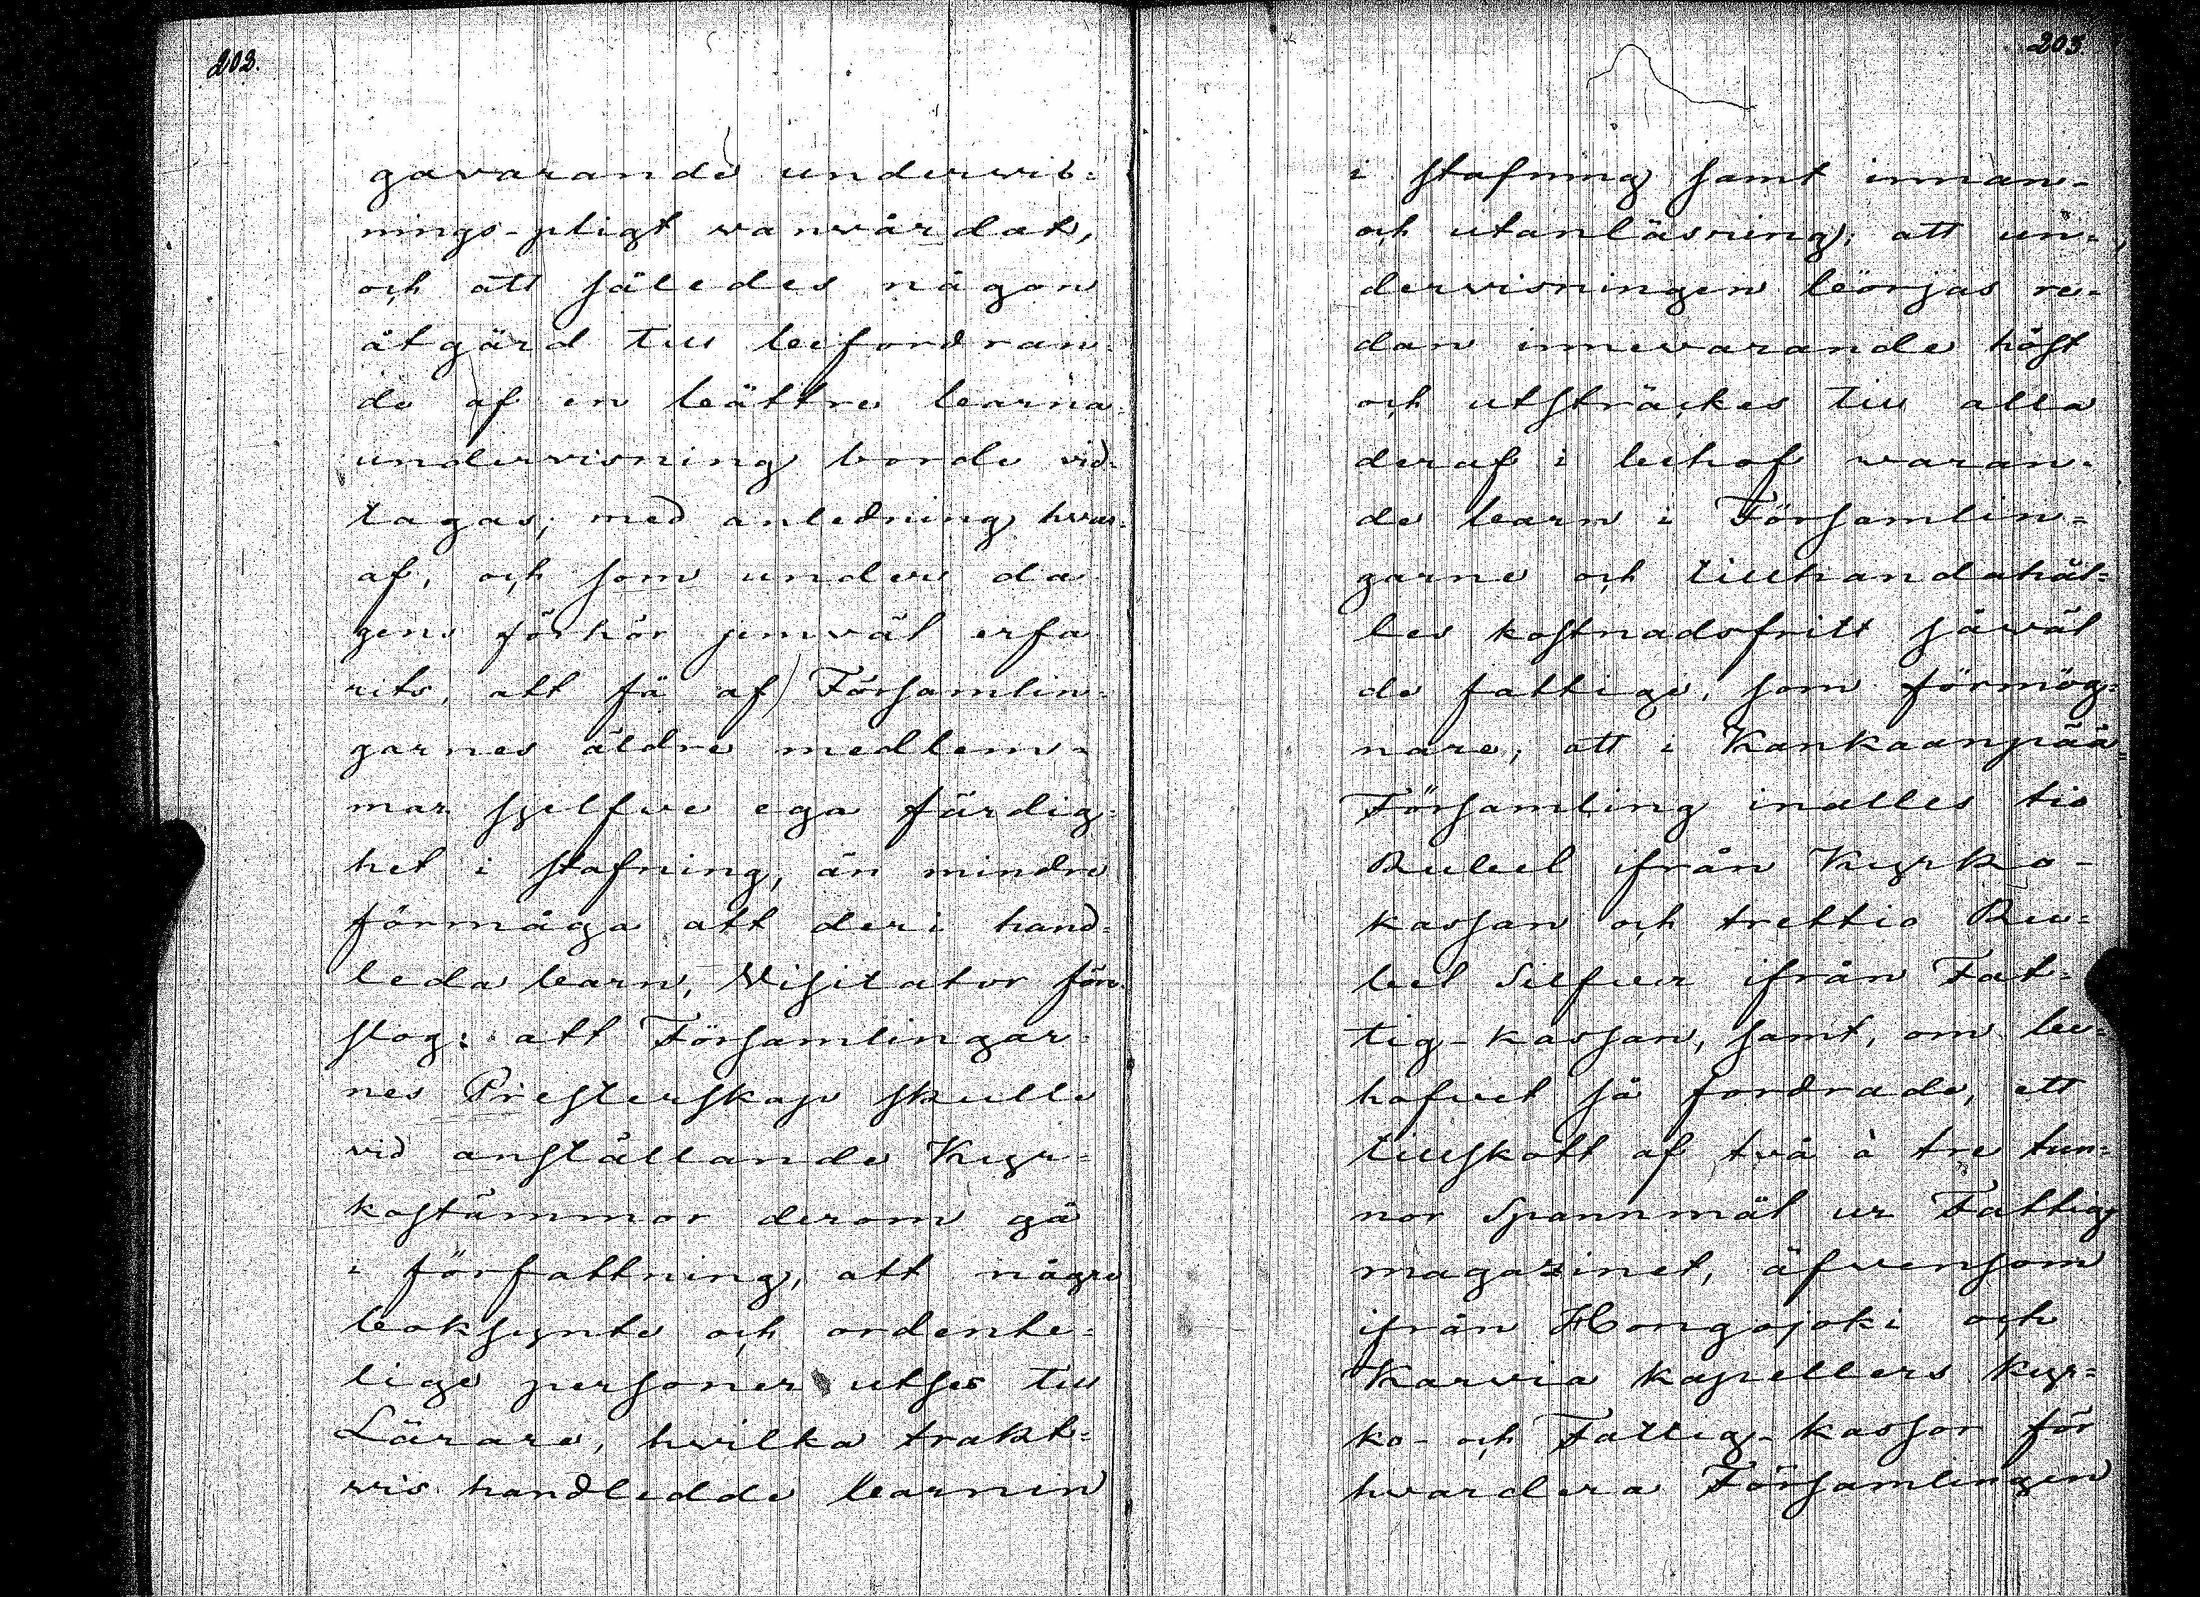 202.
gavarande undervis=
nings-pligt vanvårdat,
och att således någon
åtgärd till befordran=
de af en bättre barna=
undervisning borde vid=
tagas; med anledning hvar=
af, och som under da
gens förhör jemväl erfa
rits, att få af Församlin=
garnes äldre medlem-
mar sjelfve ega färdig=
het i stafning, än mindre
förmåga att deri hand=
leda barn, Visitator före
slog: att Församlingar=
nes Presterskap skulle
vid anställande Kyr=
kostämmor derom gå
i författning, att någre
boksynte och ordente=
lige personer utses till
Lärare, hvilka trakt=
vis handledde barnen
205
i stafning samt innan-
och utanläsning; att un=
dervisningen börjas re=
dan innevarande höst
och utsträckes till alla
deraf i behof varan=
de barn i Församlin=
garne och tillhandahål=
les kostnadsfritt såväl
de fattige, som förmög=
nare; att i Kankaanpää=
Församling inalles tio
Rubel ifrån Kyrko-
kassan och trettio Ru=
bel Silfver ifrån Fat=
tig-kassan, samt, om be=
hofvet så fordrade, ett
tillskott af två à tre tun=
nor Spannmål ur Fattig
magazinet, äfvensom
ifrån Hongojoki och
Karvia kapellers kyr=
ko- och Fattig-kassor för
hvardera Församlingen